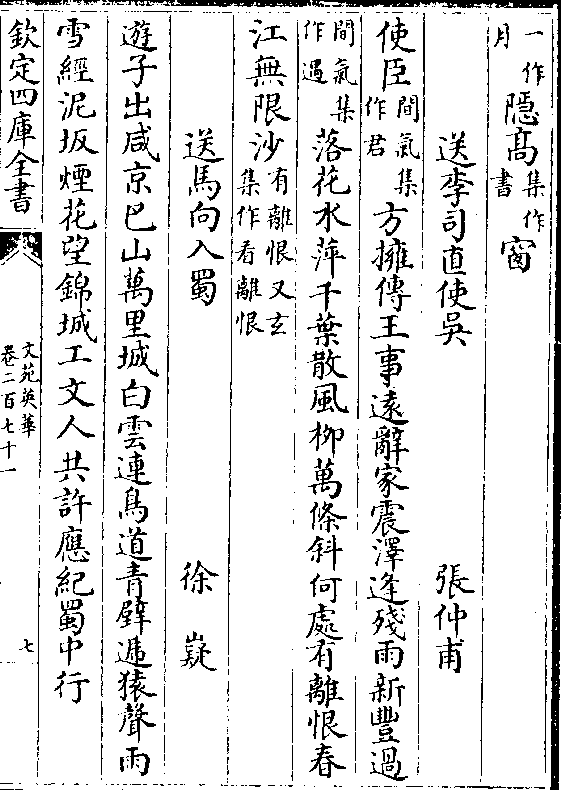 一作月隱高集作書窗
送李司直使吳　張仲甫
使臣間氣集作君方擁傳王事遠辭家震澤逢殘雨新豐過
間氣集作遇落花水萍千葉散風柳萬條斜何處有離恨春
江無限沙有離恨又玄集作看離恨
送馬向入蜀　徐嶷
遊子出咸京巴山萬里城白雲連鳥道青壁遞猿聲雨
雪經泥坂煙花望錦城工文人共許應紀蜀中行
欽定四庫全書
文苑英華
卷二百七十一
七